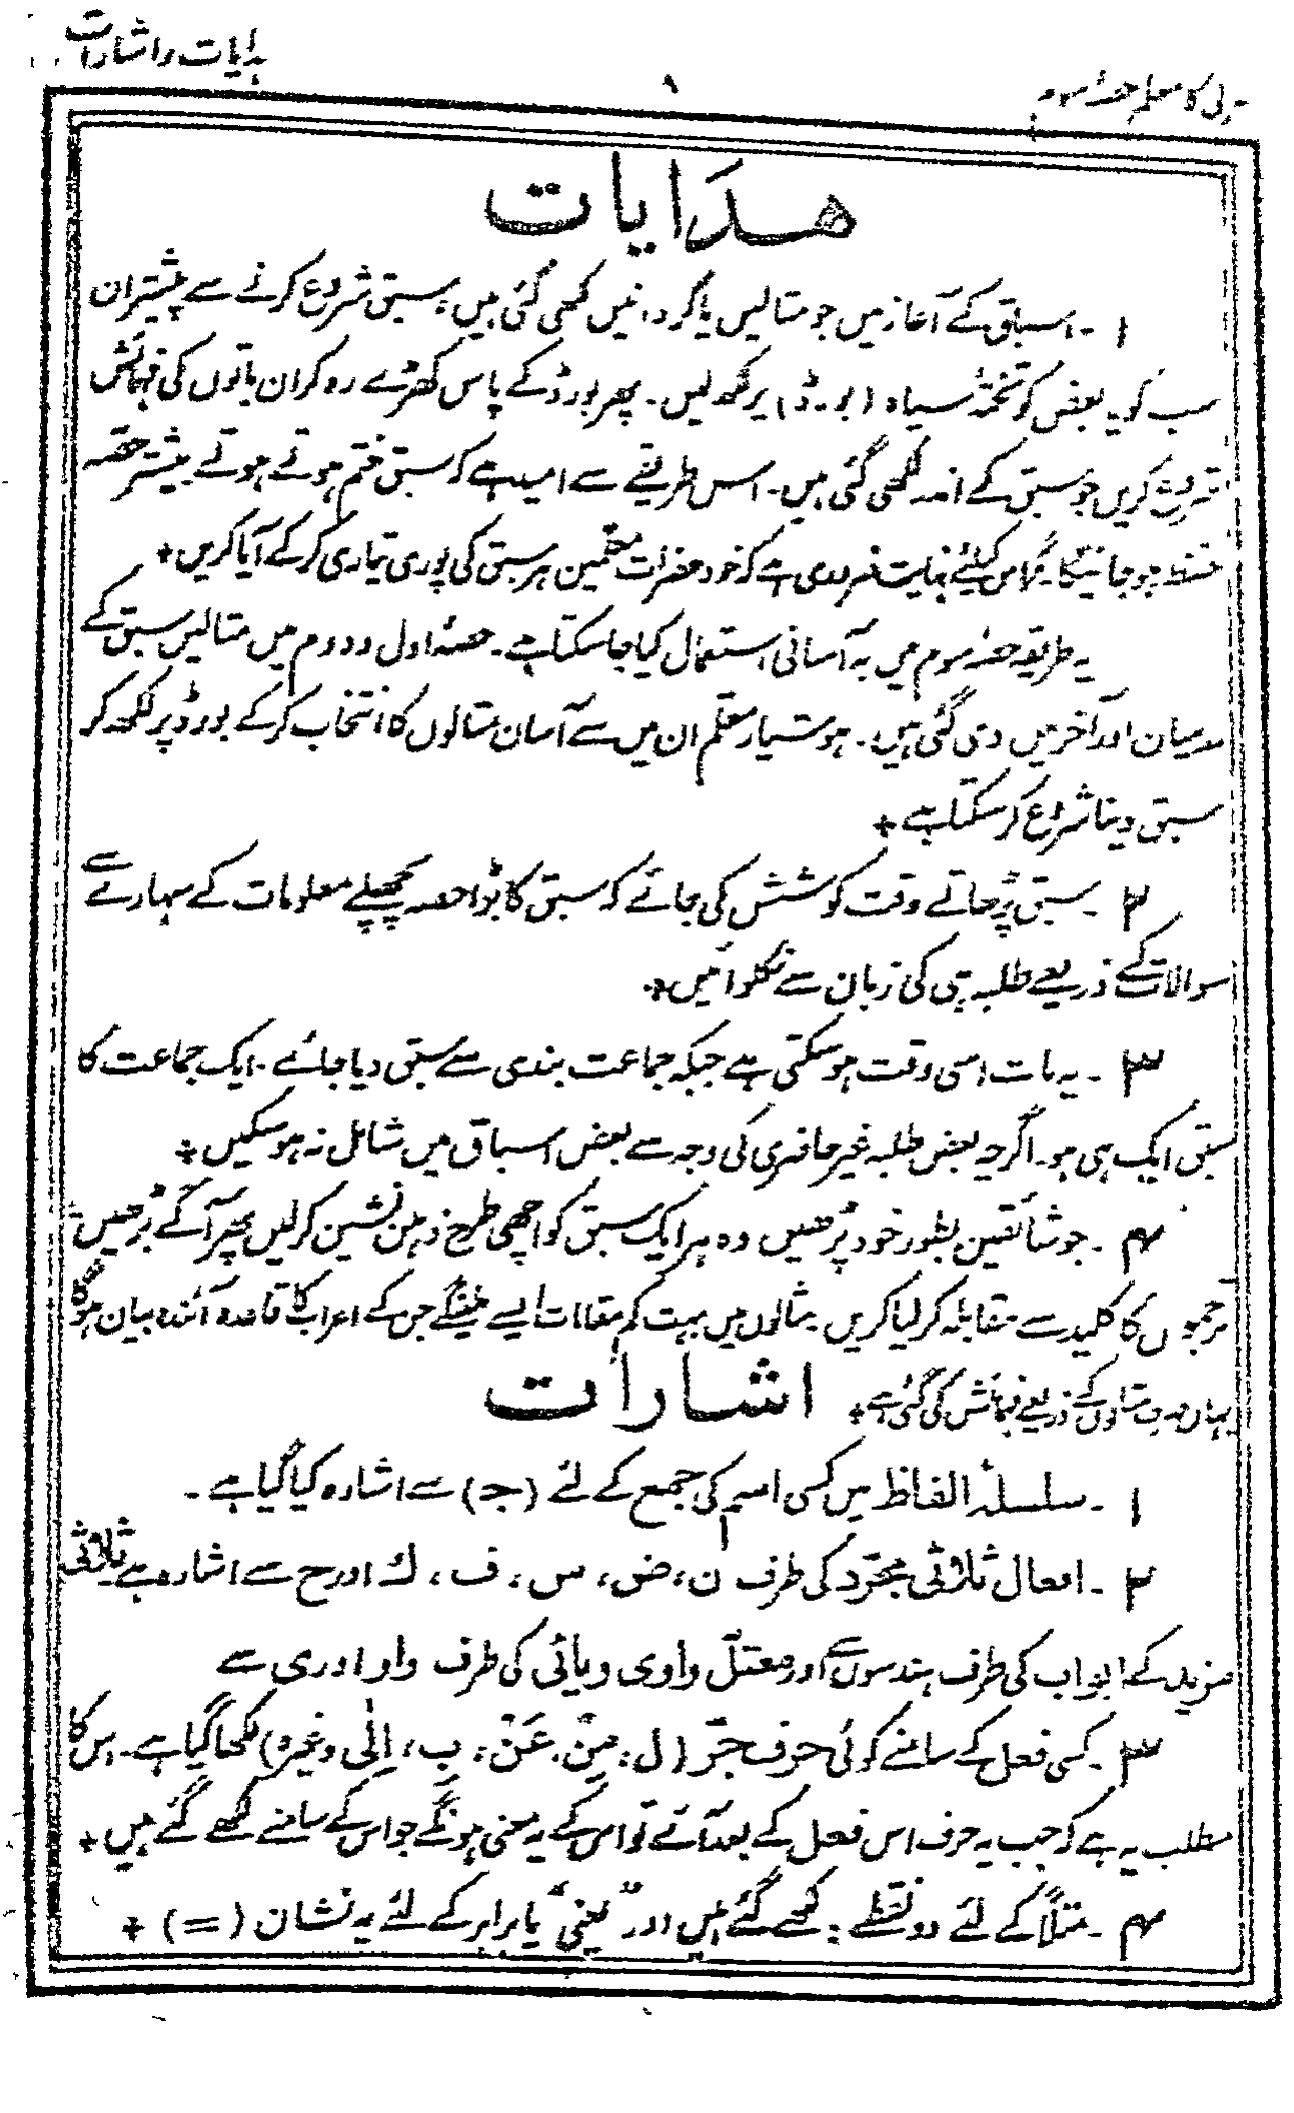 ہدایات و اشارات
۸
عربی کا معلم حصہ سوم
ھدایات
۱ ۔ اسباق کے آغاز میں جو مثالیں یا گردانیں لکھی گئی ہیں، سبق شروع کرنے سے پیشتر ان
سب کو یا بعض کو تختۂ سیاہ (بورڈ) پر لکھ لیں ۔ پھر بورڈ کے پاس کھڑے رہ کر ان باتوں کی فہمائش
شروع کریں جو سبق کے اندر لکھی گئی ہیں ۔ اس طریقے سے امید ہے کہ سبق ختم ہوتے ہوتے بیشتر حصہ
حفظ ہو جائیگا ۔ مگر اس کیلئے نہایت ضروری ہے کہ خود حضرات معلمین ہر سبق کی پوری تیاری کر کے آیا کریں +
یہ طریقہ حصۂ سوم میں بہ آسانی استعمال کیا جا سکتا ہے ۔ حصۂ اول و دوم میں مثالیں سبق کے
درمیان اور آخر میں دی گئی ہیں ۔ ہوشیار معلم ان میں سے آسان مثالوں کا انتخاب کر کے بورڈ پر لکھ کر
سبق دینا شروع کر سکتا ہے +
۲ ۔ سبق پڑھاتے وقت کوشش کی جائے کہ سبق کا بڑا حصہ پچھلے معلومات کے سہارے سے
سوالات کے ذریعے طلبہ ہی کی زبان سے نکلوائیں +
۳ ۔ یہ بات اسی وقت ہو سکتی ہے جبکہ جماعت بندی سے سبق دیا جائے ۔ ایک جماعت کا
سبق ایک ہی ہو ۔ اگرچہ بعض طلبہ غیر حاضری کی وجہ سے بعض اسباق میں شامل نہ ہو سکیں +
۴ ۔ جو شائقین بطور خود پڑھیں وہ ہر ایک سبق کو اچھی طرح ذہن نشین کر لیں پھر آگے بڑھیں
ترجموں کا کلید سے مقابلہ کر لیا کریں ۔ مثالوں میں بہت کم مقامات ایسے ملینگے جن کے اعراب کا قاعدہ آئندہ بیان ہوگا
یہاں صرف مثالوں کے ذریعے فہمائش کی گئی ہے +
اشارات
۱ ۔ سلسلۂ الفاظ میں کسی اسم کی جمع کے لئے (جـ) سے اشارہ کیا گیا ہے ۔
۲ ۔ افعال ثلاثی مجرّد کی طرف ن، ض، س، ف، ك اور ح سے اشارہ ہے ۔ ثلاثی
مزید کے ابواب کی طرف ہندسوں سے اور معتل واوی و یائی کی طرف واو اور ی سے
۳ ۔ کسی فعل کے سامنے کوئی حرف جرّ (لِ، مِنْ، عَنْ، بِ، اِلٰی وغیرہ) لکھا گیا ہے ۔ اس کا
مطلب یہ ہے کہ جب یہ حرف اس فعل کے بعد آئے تو اس کے یہ معنی ہونگے جو اس کے سامنے لکھے گئے ہیں +
۴ ۔ مثلاً کے لئے دو نقطے : لکھے گئے ہیں اور "یعنی" یا برابر کے لئے یہ نشان (=) +